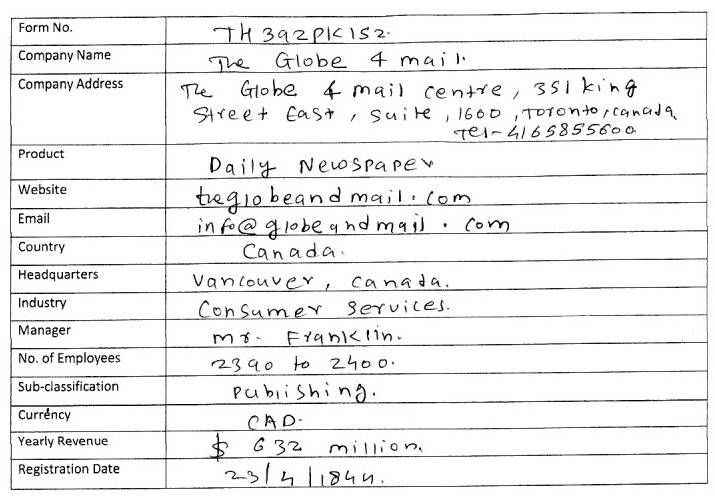 Form No. TH392PK152.
Company Name The Globe & mail.
Company Address The Globe & mail centre, 351 king
Street East, suite, 1600, Toronto, canada,
Tel-4165855600
Product Daily Newspaper
Website theglobeandmail.com
Email info@globeandmail.com
Country Canada.
Headquarters Vancouver, canada.
Industry Consumer Services.
Manager mr. Franklin.
No. of Employees 2390 to 2400.
Sub-classification publishing.
Currency CAD.
Yearly Revenue $ 632 million.
Registration Date 23/4/1844.